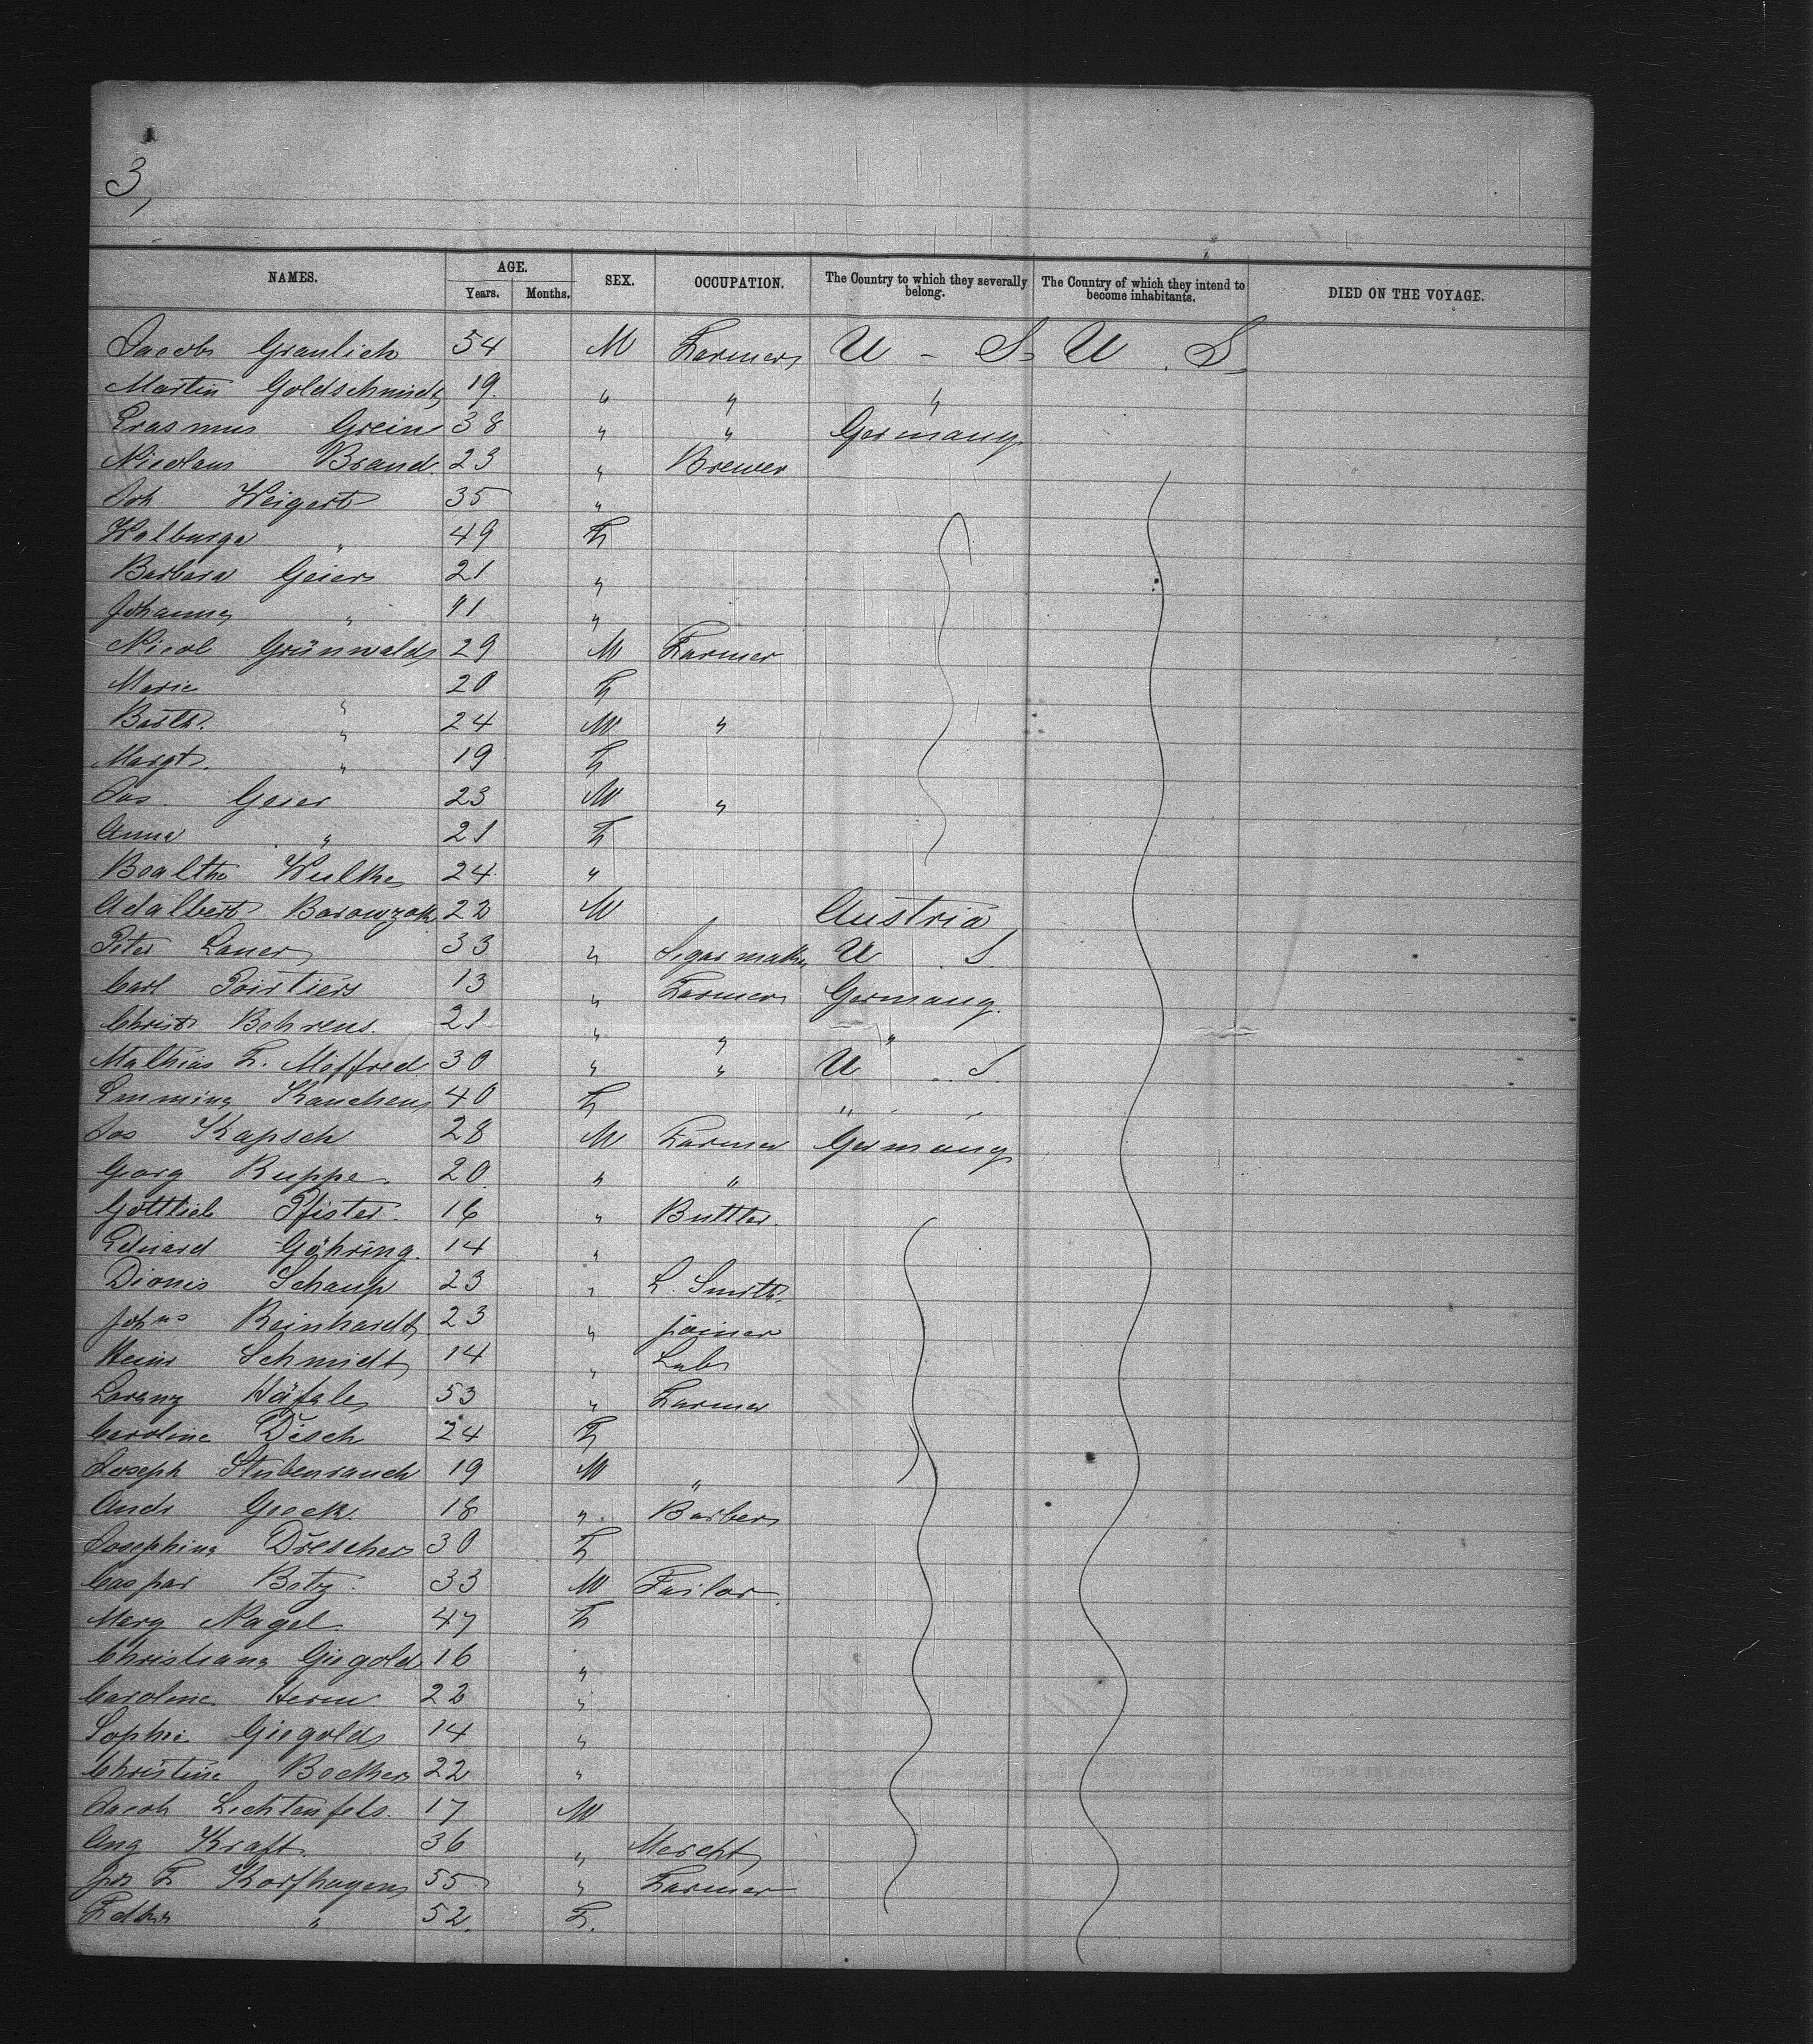 3,
NAMES. AGE. SEX. OCCUPATION. The Country to which they severally belong. The Country of which they intend to become inhabitants. DIED ON THE VOYAGE.
Years. Months.
Jacob Graulich 54 M Farmer U - S. U. S.
Martin Goldschmidt 19. " " "
Erasmus Grein 38 " " Germany
Nicolaus Brand 23 " Brewer
Joh Weigert 35 "
Walburga " 49 F
Barbara Geier 21 "
Johanna " 11 "
Nicol Grünwald 29 M Farmer
Marie " 20 F
Barth. " 24 M "
Margt. " 19 F
Jos. Geier 23 M "
Anna " 21 F
Wulke 24 "
Adalbert 22 M Austria
Peter Lauer 33 " Segar maker U. S.
Carl Poirtiers 13 " Farmer Germany.
Christ Behrens. 21 " " "
Mathias F. Meffred 30 " " U. S.
40 F "
Jos Kapsch 28 M Farmer Germany
Georg Ruppe. 20. " "
Gottlieb Pfister. 16 " Buttler.
Eduard Göhring. 14 "
Dionis Schaup 23 " L. Smith.
Johns Reinhardt 23 " joiner
Heinr Schmidt 14 " Labr
Lorenz Häfele 53 " Farmer
Caroline Disch 24 F
Joseph Stubenrauch 19 M "
Andr Geeck. 18 " Barber
Josephina Drescher 30 F
Caspar Betz. 33 M Tailor.
Mary Nagel. 47 F
Christiana Giegold 16 "
Caroline Herm 22 "
Sophie Giegold 14 "
Christine Becker 22 "
Jacob Lichtenfels. 17 M
Aug Kraft. 36 " Mercht
Jos F Korfhagen 55 " Farmer
" 52. F.